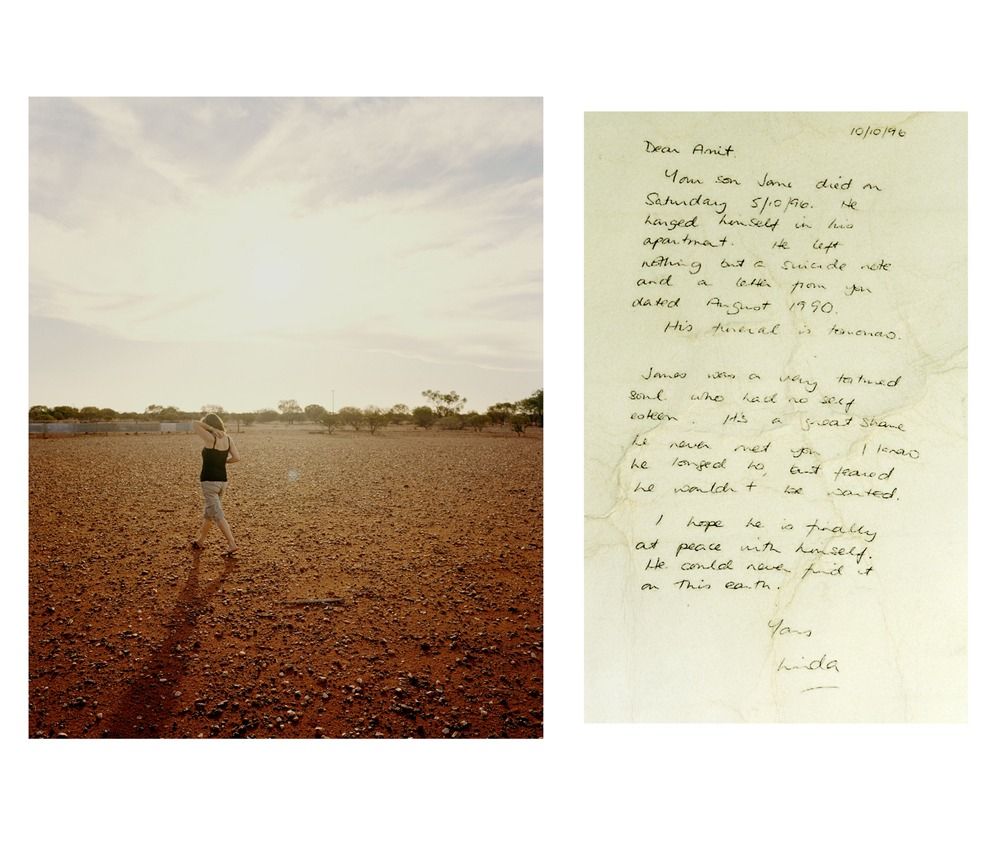 10/10/96
Dear Amit.
Your son James died on
Saturday 5/10/96. He
hanged himself in his
apartment. He left
nothing but a suicide note
and a letter from you
dated August 1990.
His funeral is tomorrow.
James was a very tortured
soul who had no self
esteem. It's a great shame
he never met you I know
he longed to, but feared
he wouldn't be wanted.
I hope he is finally
at peace with himself.
He could never find it
on this earth.
Yours
Linda